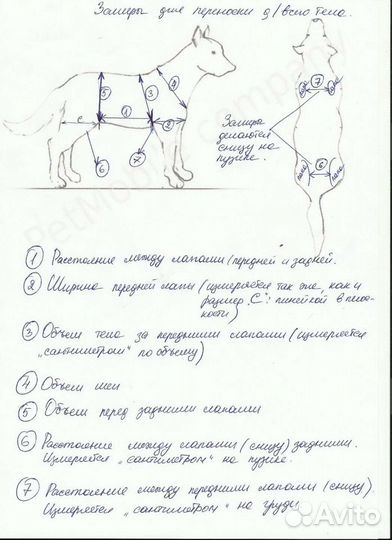 Замеры для переноски д/всего тела.
5
1
3
4
2
c
6
7
7
лапа
лапа
Замеры
делаются
снизу на
пузике.
6
лапа
лапа
PetMobile company
1 Расстояние между лапами (передней и задней.
2 Ширина передней лапы (измеряется так же, как и
размер „С": линейкой в плос-
кости)
3 Объем тела за передними лапами (измеряется
„сантиметром" по объему)
4 Объем шеи
5 Объем перед задними лапами
6 Расстояние между лапами (снизу) задними.
Измеряется „сантиметром" на пузике.
7 Расстояние между передними лапами (снизу).
Измеряется „сантиметром" на груди
Avito